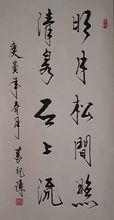 明月松間照
清泉石上流
庚寅年春月